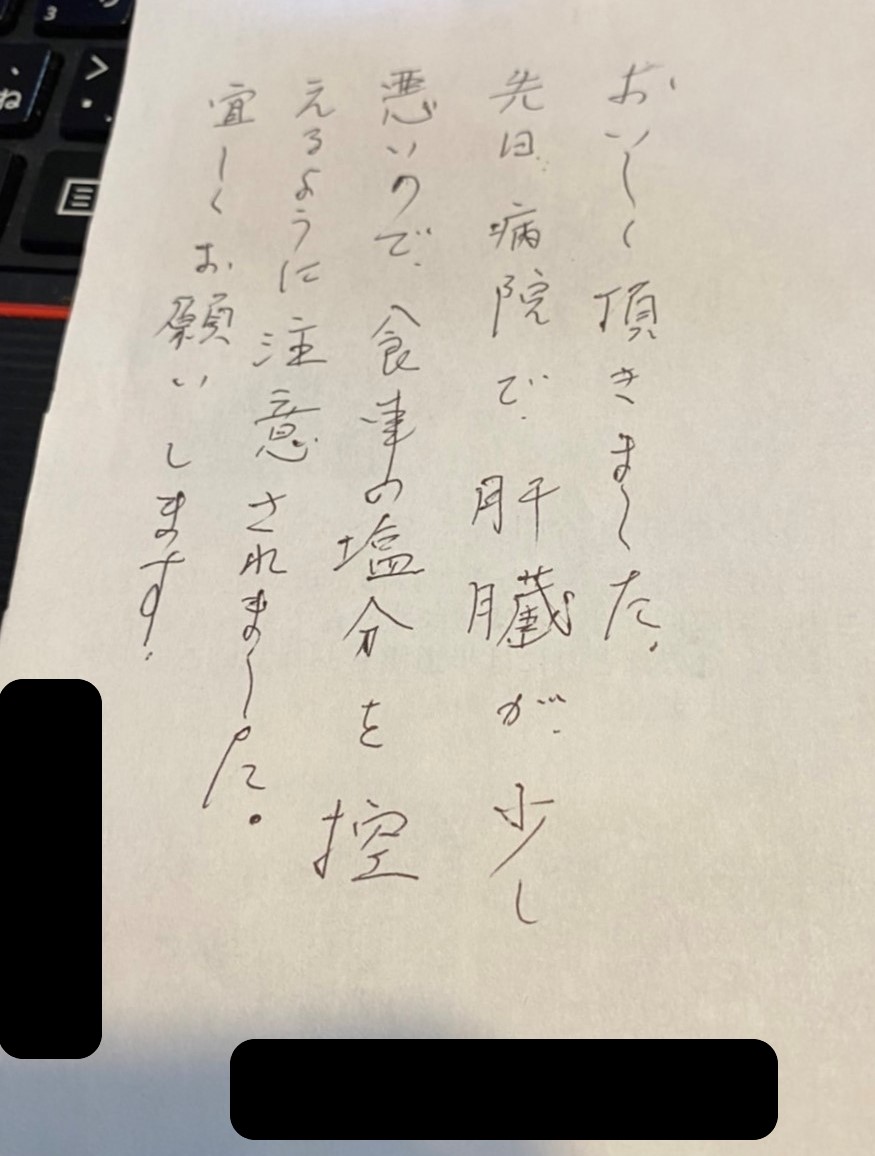 おいしく頂きました。
先日病院で肝臓が少し
悪いので、食事の塩分を控
えるように注意されました。
宜しくお願いします。
3
ね
>